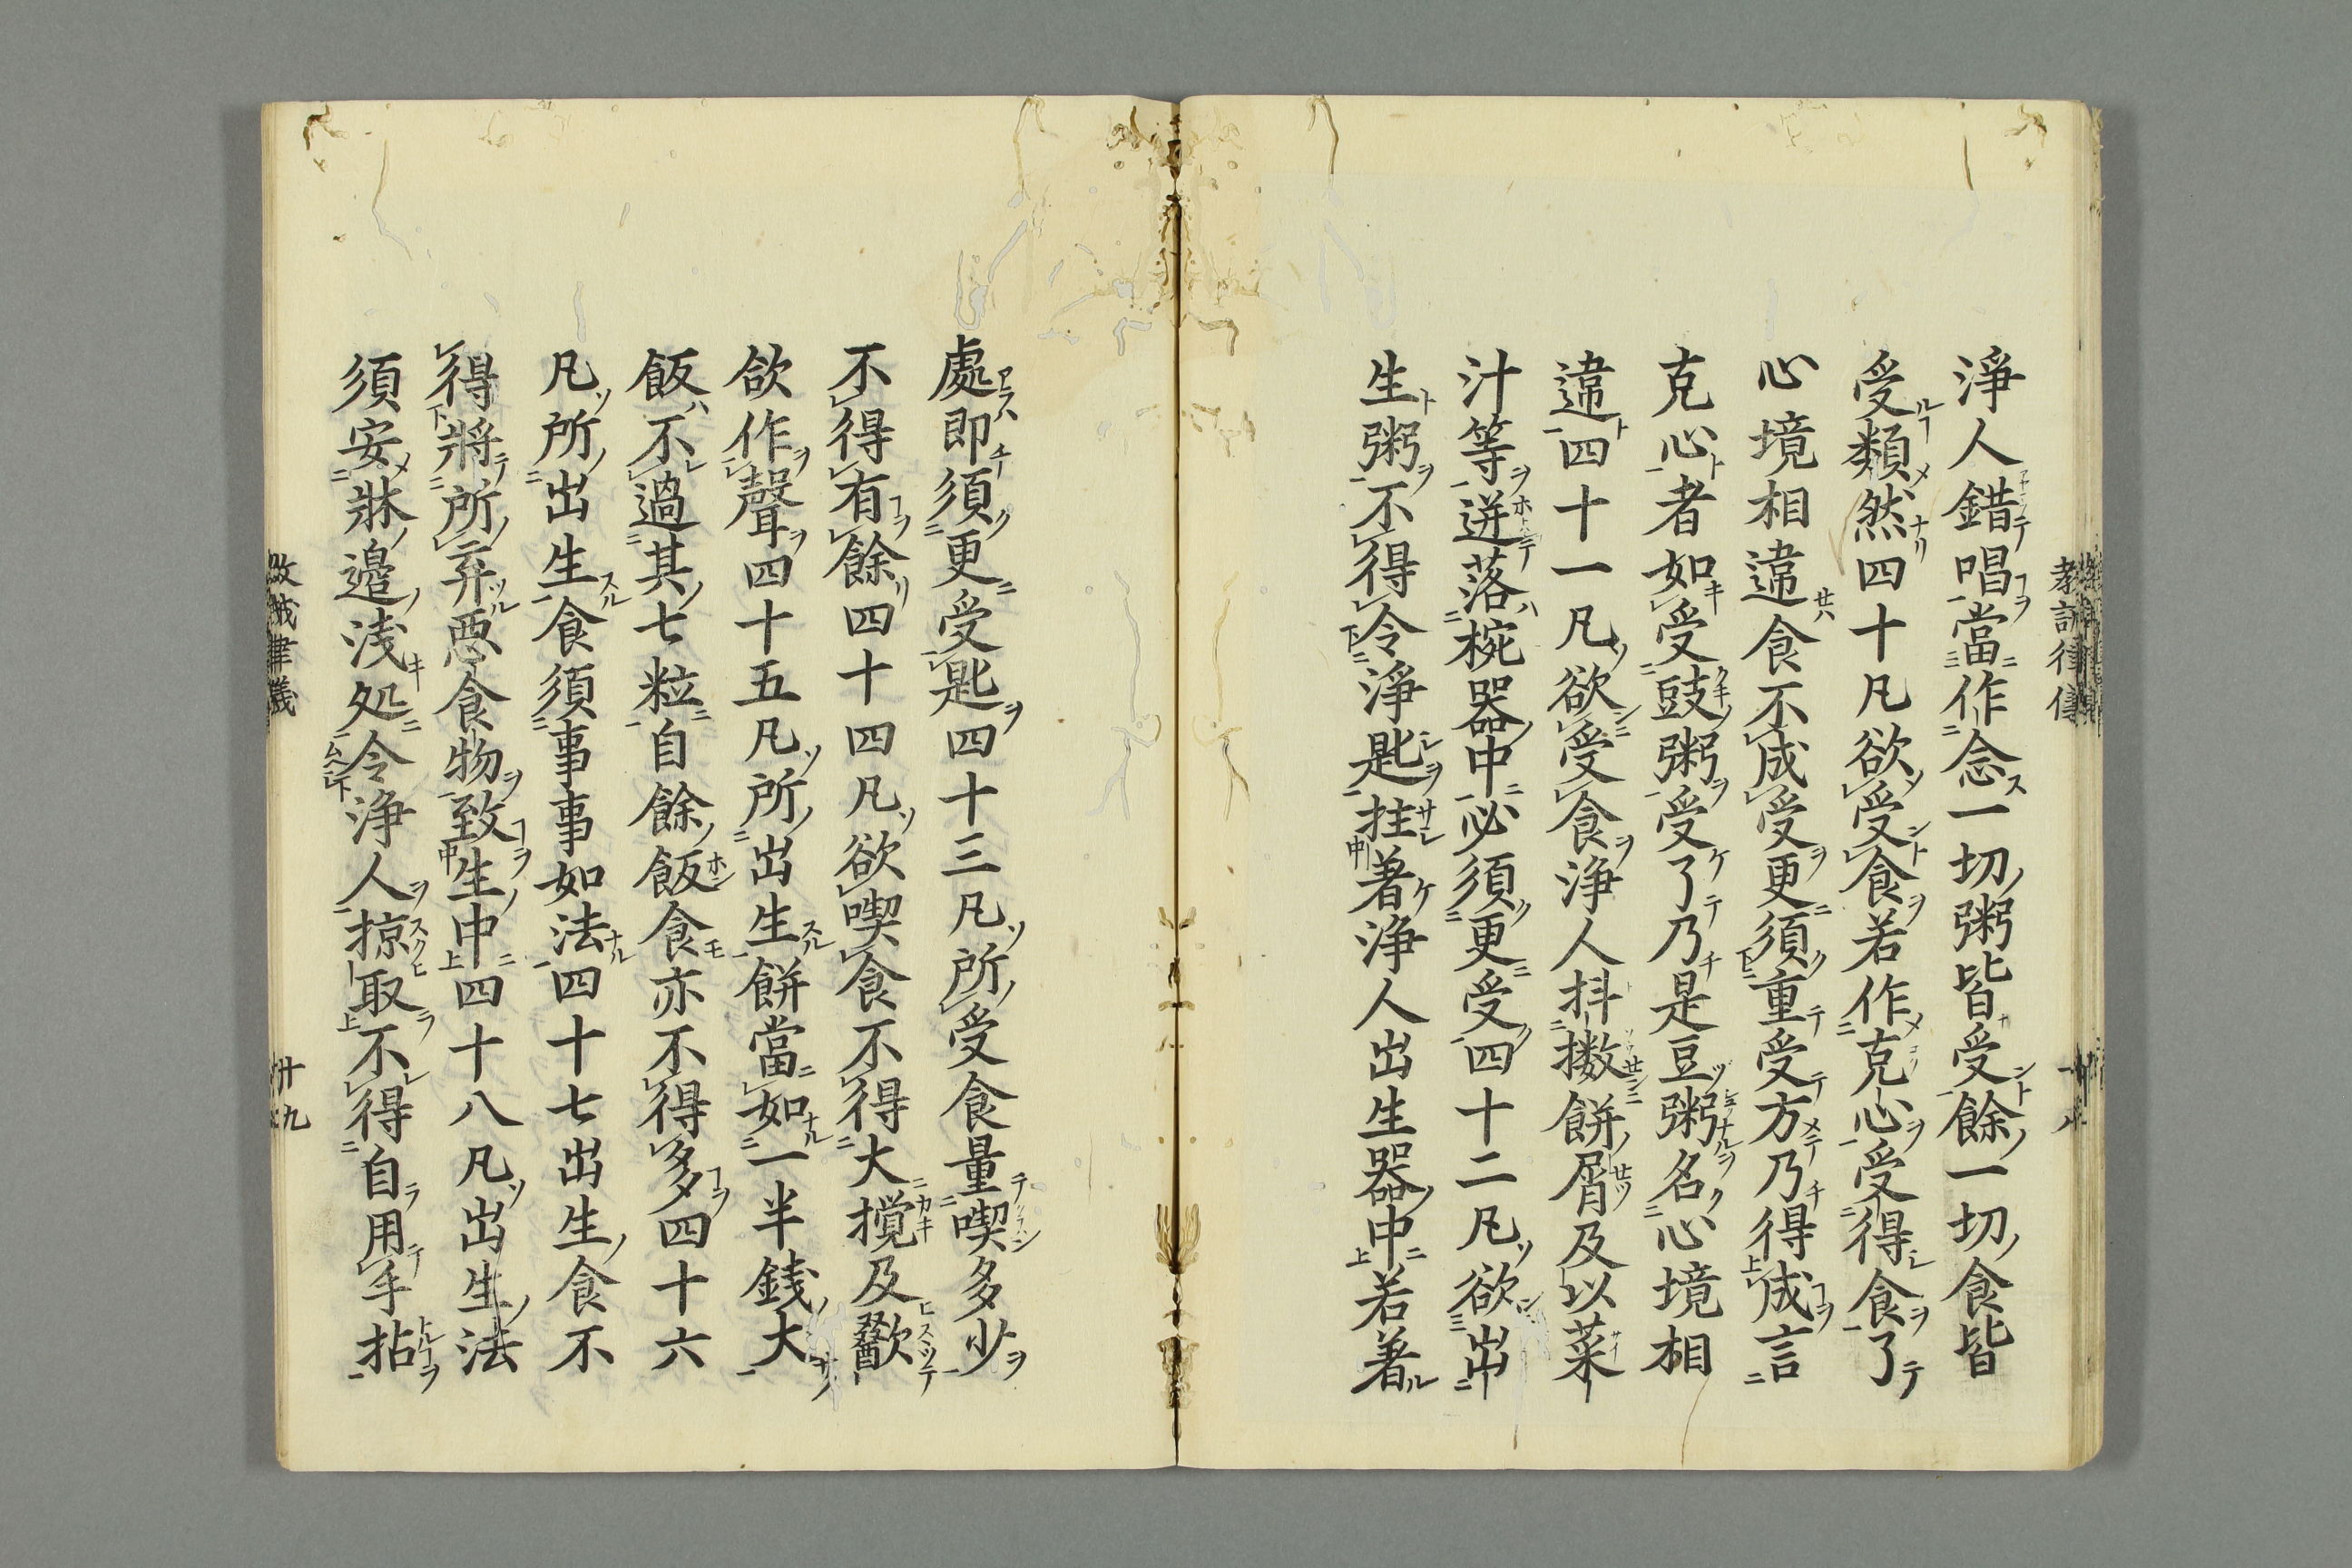 淨人錯唱當作念一切粥皆受餘一切食皆
受類然四十凡欲受食若作克心受得食了
心境相違食不成受更須重受方乃得成言
克心者如受豉粥受了乃是豆粥名心境相
違四十一凡欲受食淨人抖擻餅屑及以菜
汁等迸落椀器中必須更受四十二凡欲出
生粥不得令淨匙拄著淨人出生器中若著
處即須更受匙四十三凡所受食量喫多少
不得有餘四十四凡欲喫食不得大攪及歠
欲作聲四十五凡所出生餅當如一半錢大
飯不過其七粒自餘飯食亦不得多四十六
凡所出生食須事事如法四十七出生食不
得將所弃惡食物致生中四十八凡出生法
須安牀邊淺処令淨人掠取不得自用手拈
教誡律儀
十九